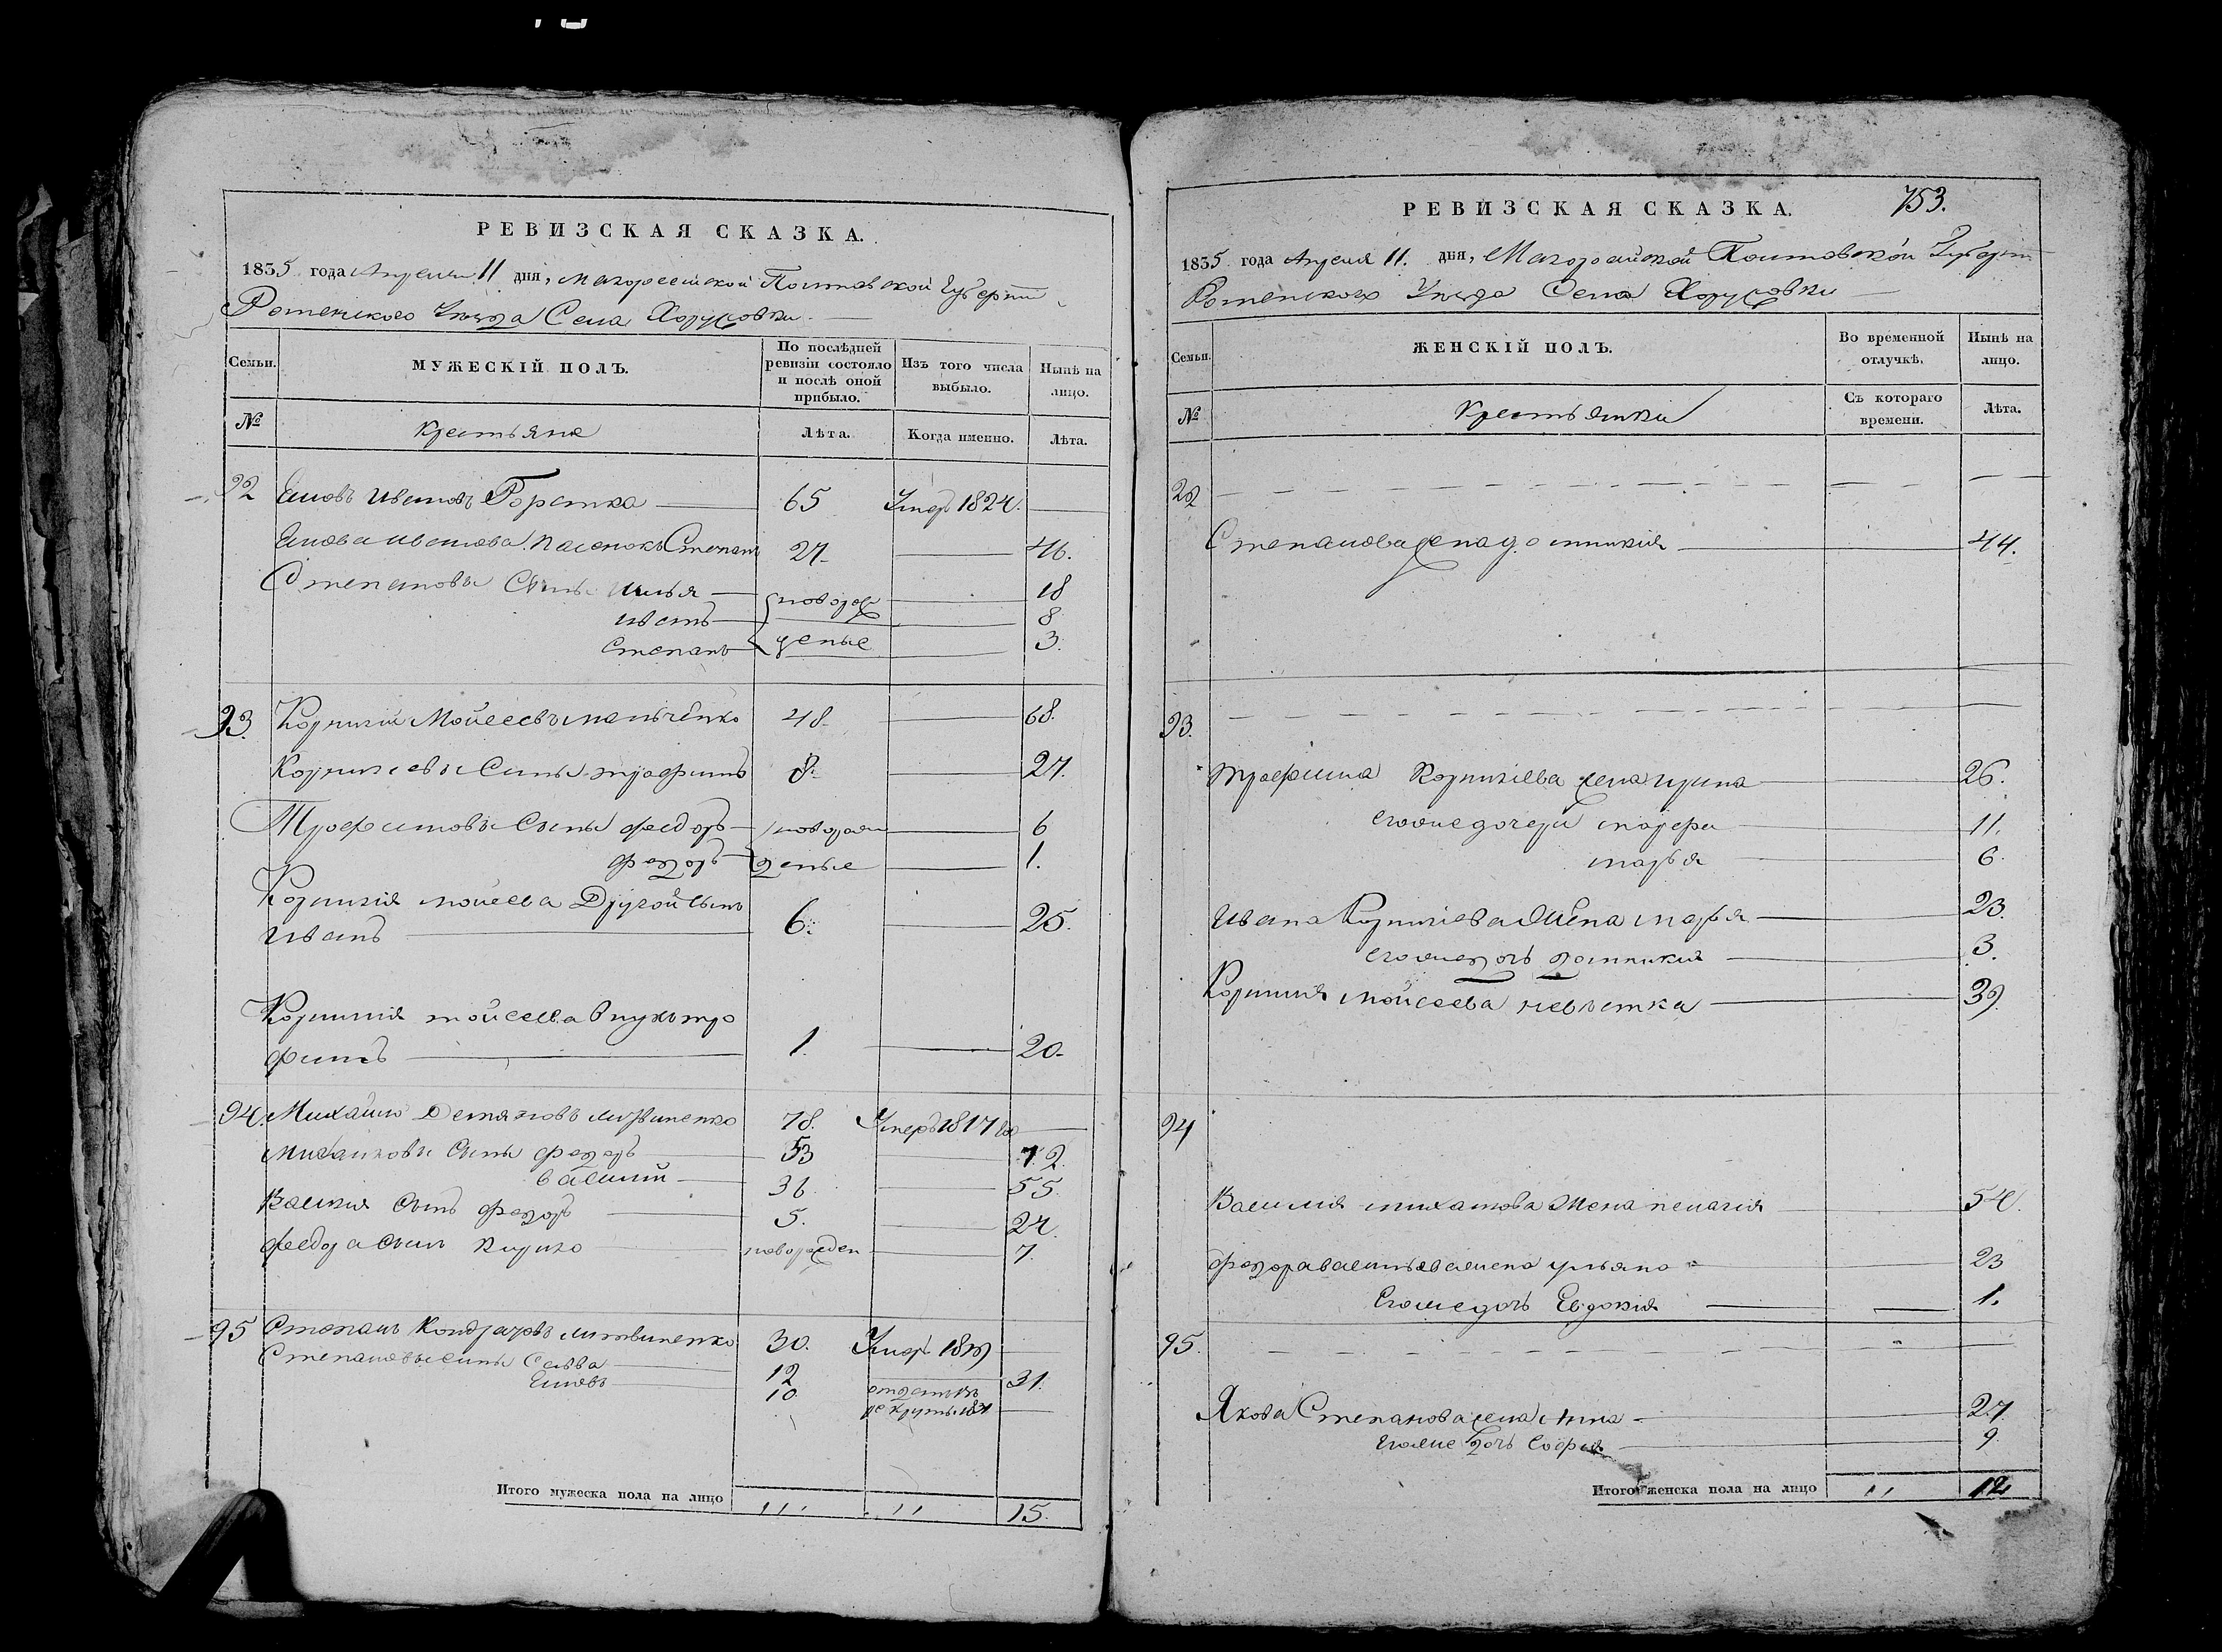 РЕВИЗСКАЯ СКАЗКА.
1835 года Апреля 11 дня, Малороссийской Полтавской Губерніи
Роменского Уезда Села Хоружовки
Семьи.
МУЖЕСКІЙ ПОЛЪ.
По послѣдней ревизіи состояло и послѣ оной прибыло.
Изъ того числа выбыло.
Нынѣ на лицо.
№
Крестьяне
Лѣта.
Когда именно.
Лѣта.
92 Ивановъ 65 Умеръ 1824.
Степанъ 27 46.
Степановы Сыны Илья новорож 18
Иванъ 8
Степанъ денные 3.
93. Корнилій Мойсеевъ 48. 68.
Корниліевы Сыны Трофимъ 8. 27.
Трофимовы Сыны Федоръ новорож 6
Федоръ деные 1.
Корнилія Мойсеева Другой Сынъ
Иванъ 6. 25.
Корнилія Мойсеева внукъ Тро
фимъ 1. 20.
94. Михайло Демяновъ Литвиненко 78. Умеръ 1817
Михайловы Сыны Федоръ 53 72.
Василий 36 55.
Василия Сынъ Федоръ 5. 24.
Федора Сынъ Кирило новорожден 7.
95 Степанъ Кондратовъ Литвиненко 30. Умеръ
Степановы Сыны Савва 12 31.
10. отданъ въ
рекруты
Итого мужеска пола на лицо 11. 11 15.
РЕВИЗСКАЯ СКАЗКА. 753.
1835 года Апреля 11. дня, Малоросийской Полтавской Губерніи
Роменского Уезда Села Хоружовки
Семьи.
ЖЕНСКІЙ ПОЛЪ.
Во временной отлучкѣ.
Нынѣ на лицо.
№
Крестьянки
Съ котораго времени.
Лѣта.
92
Степанова жена Домникия 44.
93.
Трофима Корниліева жена Ирина 26.
егоже дочери Марфа 11.
Марья 6.
Ивана Корниліева Жена Марья 23.
егоже дочь Домникия 3.
Корнилия Мойсеева невестка 39
94
Василия Михайлова Жена Пелагія 54.
Федора Васильева жена Ульяна 23
Егоже дочь Евдокія 1.
95.
Якова Степанова жена Анна 27.
Егоже дочь Софья 9.
Итого женска пола на лицо 11 12